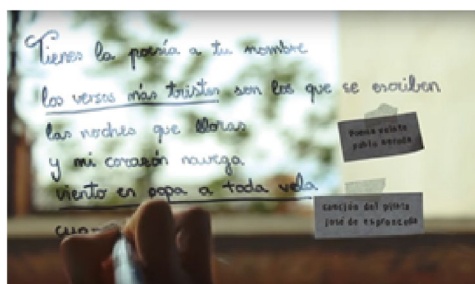 Tienes la poesía a tu nombre
los versos más tristes son los que se escriben
las noches que lloras
y mi corazón navega
viento en popa a toda vela
cuan
Poema veinte
pablo neruda
canción del pirata
josé de espronceda